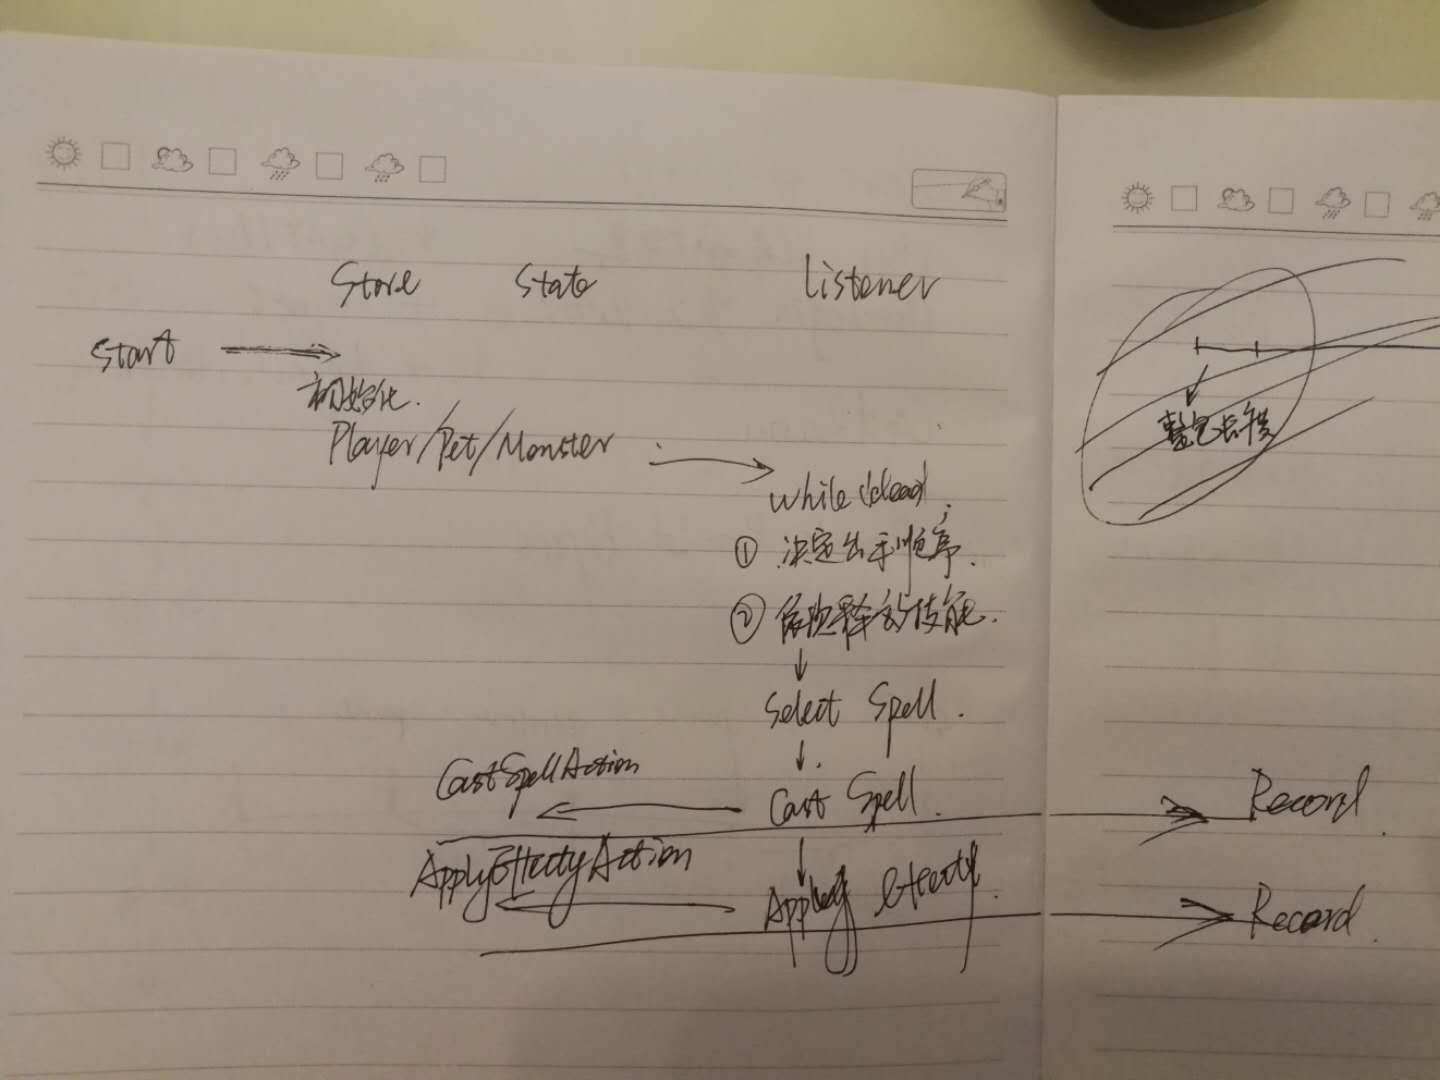 Store State Listener
Start
初始化.
Player/Pet/Monster
while (dead)
① 决定出手顺序.
② 依次释放技能.
Select Spell.
CastSpellAction
Cast Spell.
Record.
ApplyEffectyAction
Apply effecty.
Record.
整包长度